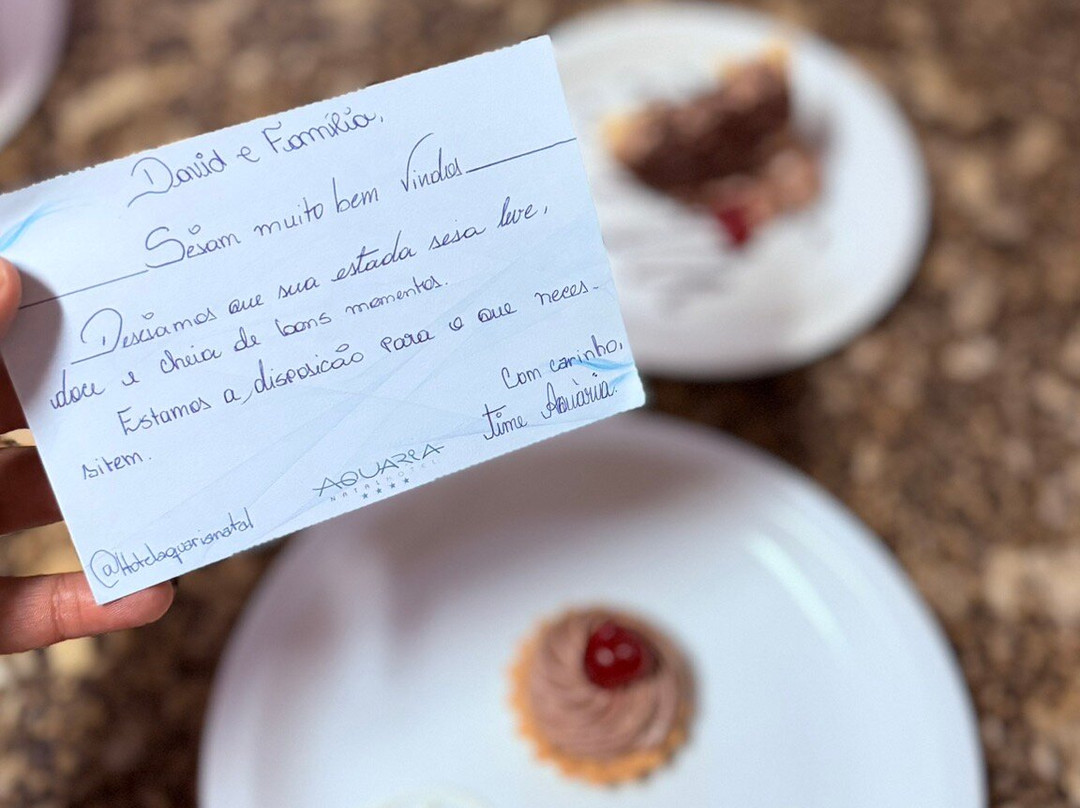 David e Família,
Sejam muito bem Vindos
Desejamos que sua estada seja leve,
doce e cheia de bons momentos.
Estamos a disposição para o que neces-
sitem.
Com carinho,
time Aquária.
AQUARIA
NATAL HOTEL
@Hotelaquarianatal